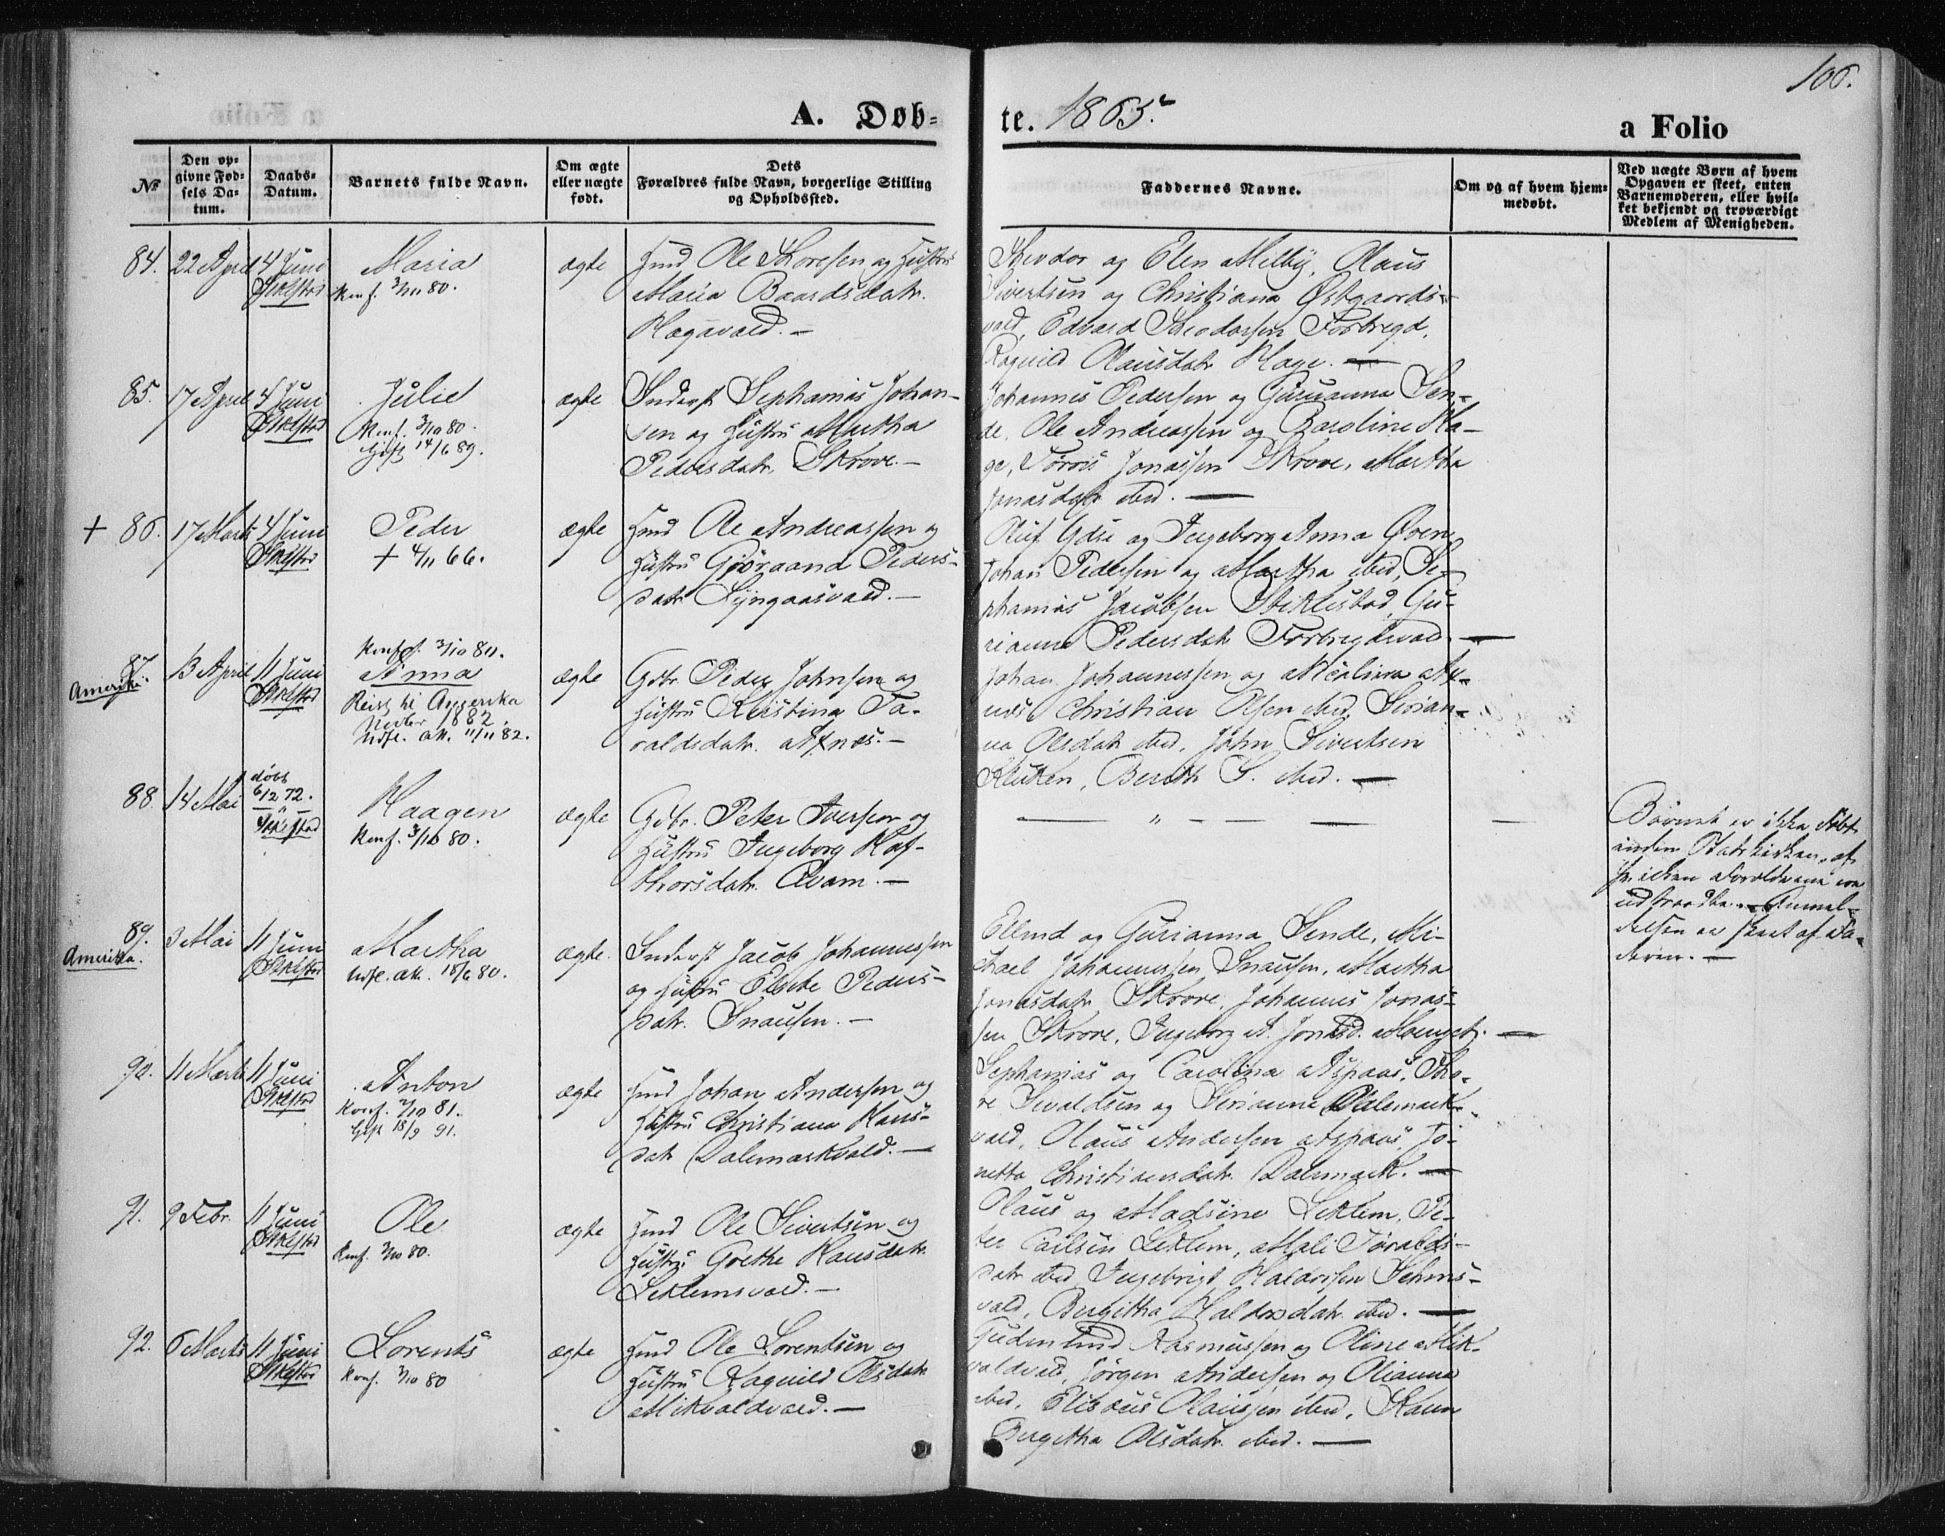 106.
A. Døb-
te. 1865.
a Folio
№
Den op-
givne Fød-
sels Da-
tum.
Daabs-
Datum.
Barnets fulde Navn.
Om ægte
eller uægte
født.
Dets
Forældres fulde Navn, borgerlige Stilling
og Opholdssted.
Faddernes Navne.
Om og af hvem hjem-
medøbt.
Ved uægte Børn af hvem
Opgaven er skeet, enten
Barnemoderen, eller hvil-
ket bekjendt og troværdigt
Medlem af Menigheden.
84. 22 April 4 Juni
Maria
Konf. 80.
ægte
Ole Thoresen og Hustru
Maria Baardsdatr.
Hagavald. —
Theodor og Elen Melby, Olaus
Sivertsen og Christiana Østgaards-
vald, Edvard Theodorsen Forbregd,
Ragnild Olausdatr Hage. —
85. 17 April 4 Juni
Julie
Konf. 3/10 80.
Gift 14/6 89.
ægte
Inderst Sephanias Johan-
sen og Hustru Martha
Pedersdatr. Skrove. —
Johannes Pedersen og Gurianna Sen-
de, Ole Andreassen og Karoline Ha-
ge, Jonassen Skrove, Martha
Jonasdatr ibid. —
+ 86. 17 Marts 4 Juni
Peder
+ 4/11 66.
ægte
Ole Andreassen og
Hustru Peders-
datr Lyngaasvald. —
Oluf Ydse og Ingeborg Anna
Johan Pedersen og Martha ibid, Se-
phanias Jacobsen Stiklestad, Gu-
rianna Pedersdatr Forbregdsvald. —
87. 13 April 11 Juni
Amerika.
Konf. 3/10 80.
Anna
Reist til Amerika
1882.
Udfl. att. 11/11 82.
ægte
Gbr. Peder Johnsen og
Hustru Kirstina To-
raldsdatr. —
Johan Johannessen og
Christian Olsen ibid,
Olsdatr ibid, John Sivertsen
ibid. —
88. 14 Mai
døbt
6/12 72.
Haagen
Konf. 3/10 80.
ægte
Gbr. Peter Iversen og
Hustru Ingeborg Haf-
thorsdatr. Kvam. —
— " — — — —
Barnet er ikke døbt
inden Statskirken, af
hvilken Forældrene ere
udtraadte. — Anmel-
delsen er skeet af Fa-
deren. —
89. 3 Mai 11 Juni
Amerika.
Martha
Udfl. att. 18/6 80.
ægte.
Inderst Jacob Johannessen
og Hustru Peders-
datr. Snausen. —
Ellend og Gurianna Sende, Mi-
kael Johannessen Snausen, Martha
Jonasdatr Skrove, Johannes Jonas-
sen Skrove, Ingeborg A. Jonasd. —
90. 11 Marts 11 Juni
Anton
Konf. 2/10 81.
Gift 18/9 91.
ægte
Johan Andersen og
Hustru Christiana Hans-
datr Dalemarksvald. —
Sephanias og Carolina Aspaas, Tho-
re Sivaldsen og Serianna Dalemarks-
vald, Olaus Andersen Aspaas, Jo-
netta Christiansdatr Dalemark. —
91. 9 Febr. 11 Juni
Ole
Konf. 3/10 80.
ægte
Ole Sivertsen og
Hustru Grethe Hansdatr
Leklemsvald. —
Olaus og Madsine Leklem, Pe-
ter Carlsen Leklem, Mali Toralds-
datr ibid, Ingebrigt Haldorsen
vald, Bergitha Haldorsdatr ibid. —
92. 6 Marts 11 Juni
Lorents
Konf. 3/10 80
ægte
Ole Lorentsen og
Hustru Ragnild Olsdatr
Mikvoldvald. —
Rasmussen og Oline Mik-
voldvald, Jørgen Andersen og Olianna
ibid, Olaussen ibid,
Bergitha Olsdatr ibid. —